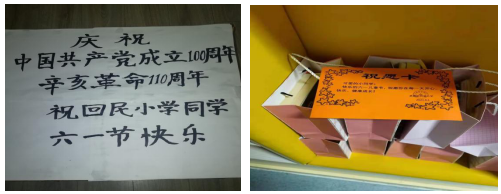 庆祝
中国共产党成立100周年
辛亥革命110周年
祝回民小学同学
六一节快乐
祝愿卡